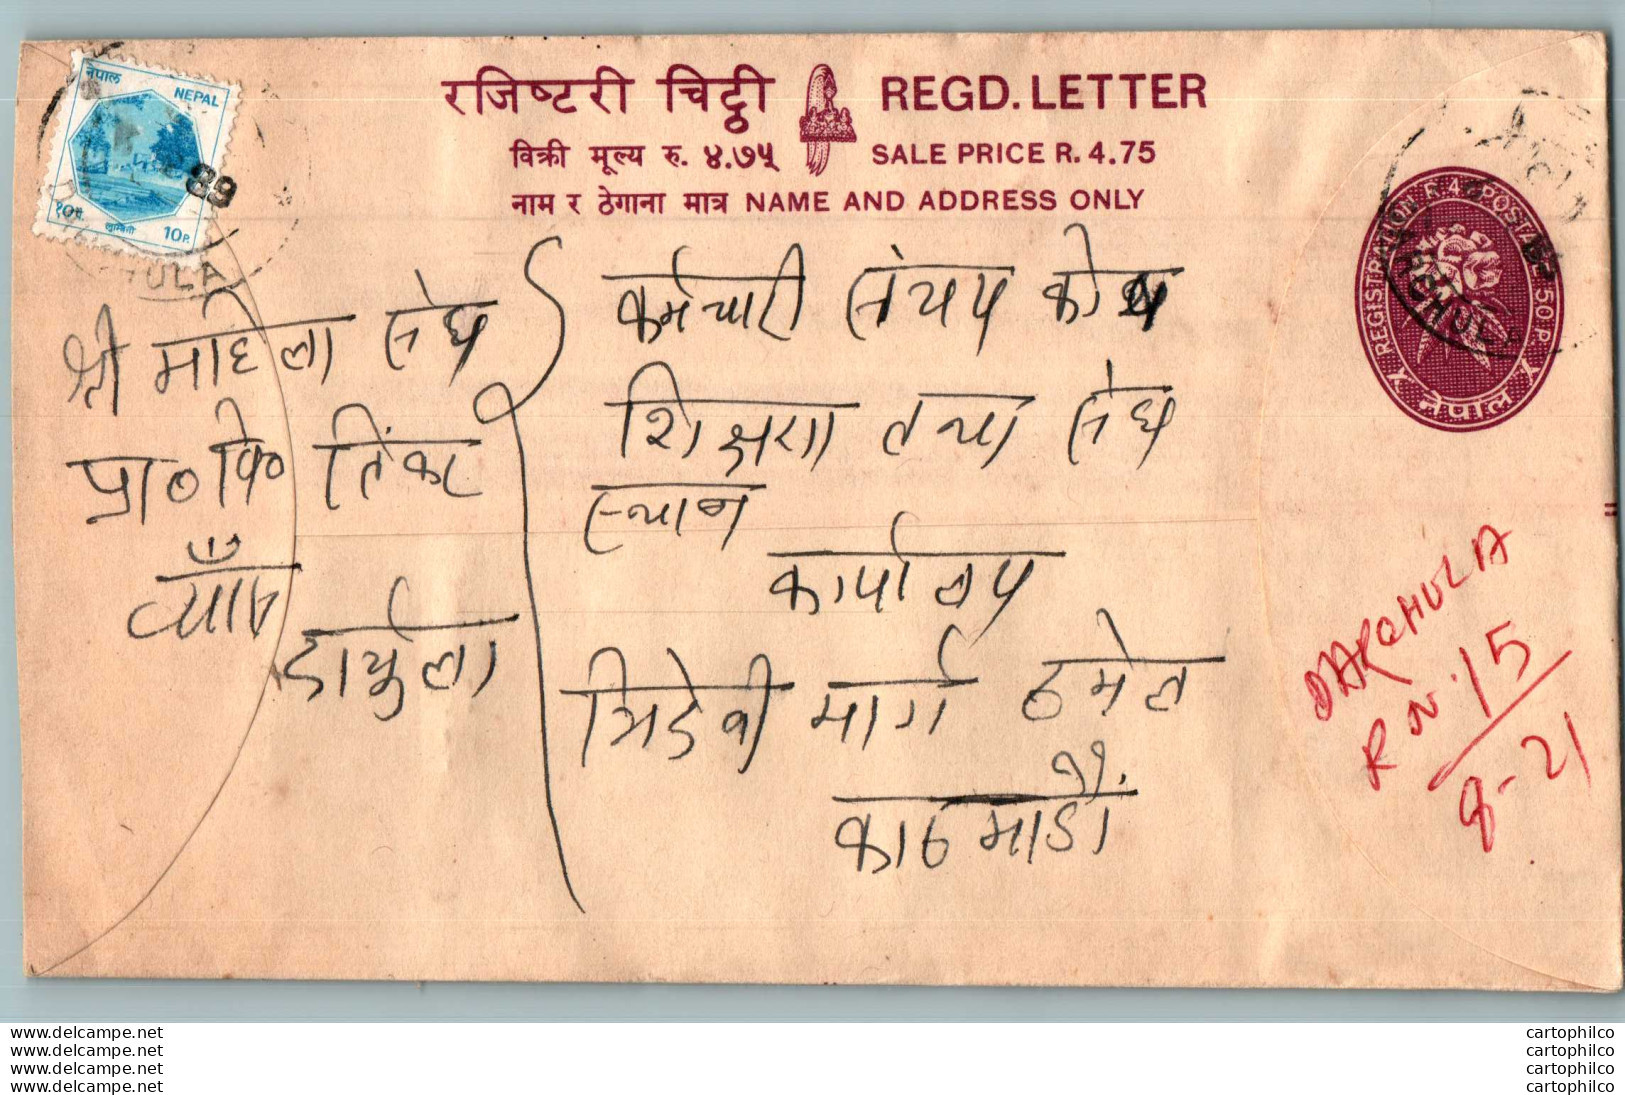 नेपाल
NEPAL
१०पै.
लुम्बिनी
10P.
89
HULA
रजिष्टरी चिट्ठी REGD. LETTER
विक्री मूल्य रु. ४.७५ SALE PRICE R. 4.75
नाम र ठेगाना मात्र NAME AND ADDRESS ONLY
REGISTRATION R 4 POSTAGE 50 P.
नेपाल
श्री महिला संघ
प्रा० वि० तिंकर
व्याँस
दार्चुला
कर्मचारी संचय कोष
शिक्षण तथा संघ
स्थान
कार्यालय
त्रिदेवी मार्ग ठमेल
काठमाडौं
DARCHULA
R N. 15
8-21
www.delcampe.net
www.delcampe.net
www.delcampe.net
www.delcampe.net
cartophilco
cartophilco
cartophilco
cartophilco